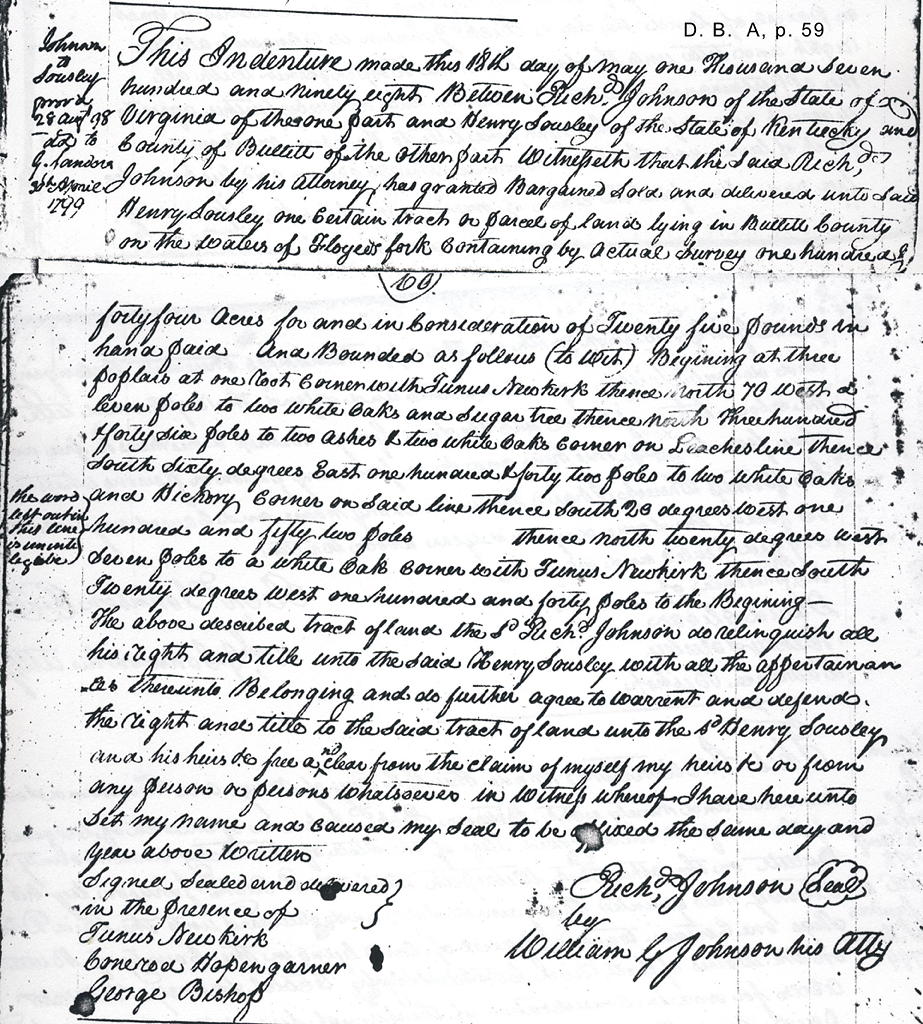 D. B. A, p. 59
Johnson
to
Sousley
prov'd
28 aug 98
dd to
G. Sanders
April
1799
This Indenture made this 18th day of may one Thousand Seven
hundred and ninety eight Between Richd. Johnson of the State of
Virginia of the one part and Henry Sousley of the State of Kentucky and
County of Bullitt of the other part Witnesseth that the Said Richd.
Johnson by his Attorney, has granted Bargained Sold and delivered unto Said
Henry Sousley one Certain tract or parcel of land lying in Bullitt County
on the waters of Floyeds fork Containing by Actual Survey one hundred &
60
forty four Acres for and in Consideration of Twenty five pounds in
hand paid And Bounded as follows (to wit) Begining at three
poplars at one Root Corner with Tunus Newkirk thence North 70 West
leven poles to two white Oaks and Sugar tree thence north Three hundred
& forty Six poles to two ashes & two white Oaks Corner on Leaches line thence
South Sixty degrees East one hundred & forty two poles to two white Oaks
and Hickory Corner on Said line thence South 20 degrees west one
the word
left out in
this line
is unin
legible
hundred and fifty two poles thence north twenty degrees west
Seven poles to a white Oak Corner with Tunus Newkirk thence South
Twenty degrees West one hundred and forty poles to the Begining—
The above described tract of land the sd. Richd. Johnson do relinquish all
his right and title unto the Said Henry Sousley with all the appertainan
ces thereunto Belonging and do further agree to warrent and defend
the right and title to the Said tract of land unto the sd Henry Sousley
and his heirs &c free and clear from the claim of myself my heirs &c or from
any person or persons whatsoever in Witness whereof I have here unto
Set my name and Caused my Seal to be affixed the Same day and
year above Written
Signed Sealed and delivered
in the presence of
Tunus Newkirk
Conerod Hopengarner
George Bishop
Richd. Johnson Seal
by
William G Johnson his Atty